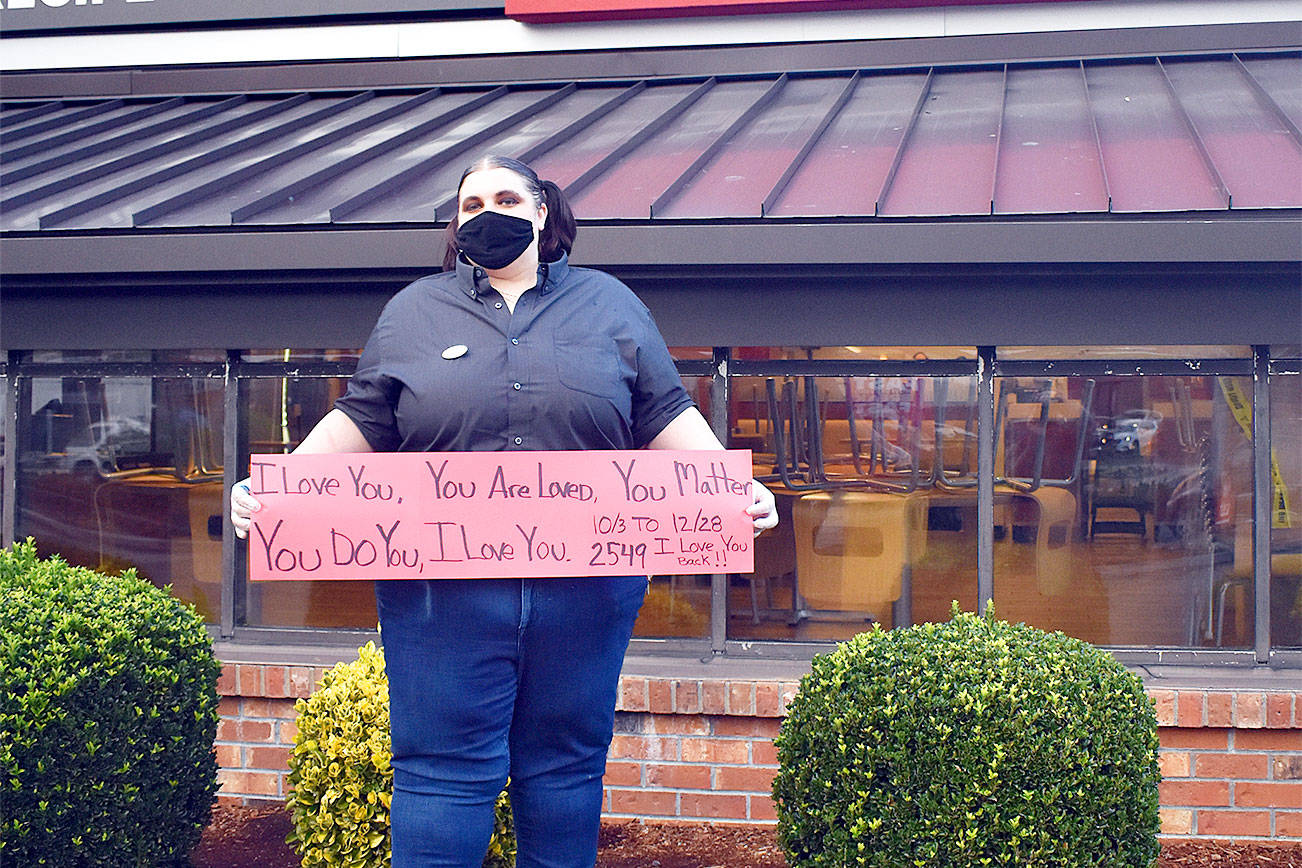 I Love You, You Are Loved, You Matter
You Do You, I Love You. 10/3 TO 12/28
2549 I Love You
Back!!